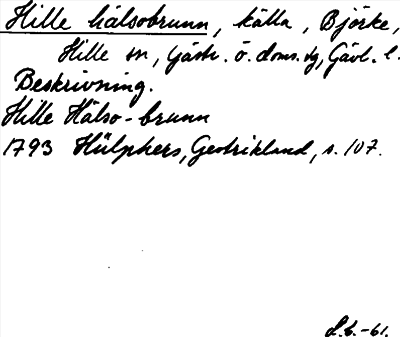 Hille hälsobrunn, källa, Björke,
Hille sn, Gästr. ö. doms. dg, Gävl. l.
Beskrivning.
Hille Hälso-brunn
1793 Hülphers, Gestrikland, s. 107.
L.b.-61.